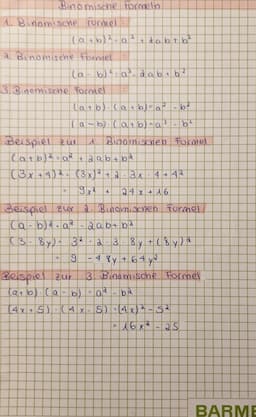 Binomische Formeln
1. Binomische Formel
(a + b)² = a² + 2ab + b²
2. Binomische Formel
(a - b)² = a² - 2ab + b²
3. Binomische Formel
(a+b) · (a+b) = a² - b²
(a-b) · (a+b) = a² - b²
Beispiel zur 1. Binomischen Formel
(a+b)² = a² + 2ab + b²
(3x + 4)² = (3x)² + 2 · 3x · 4 + 4²
= 9x² + 24x + 16
Beispiel zur 2. Binomischen Formel
(a - b)² = a² - 2ab + b²
(3 - 8y) = 3² - 2 · 3 · 8y + (8y)²
= 9 - 48y + 64y²
Beispiel zur 3. Binomische Formel
(a+b) · (a - b) = a² - b²
(4x + 5) · (4x - 5) = (4x)² - 5²
= 16x² - 25
BARME